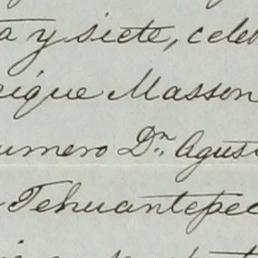 ta y siete, celeb
rique Masson
umero Dn. Agust
Tehuantepec